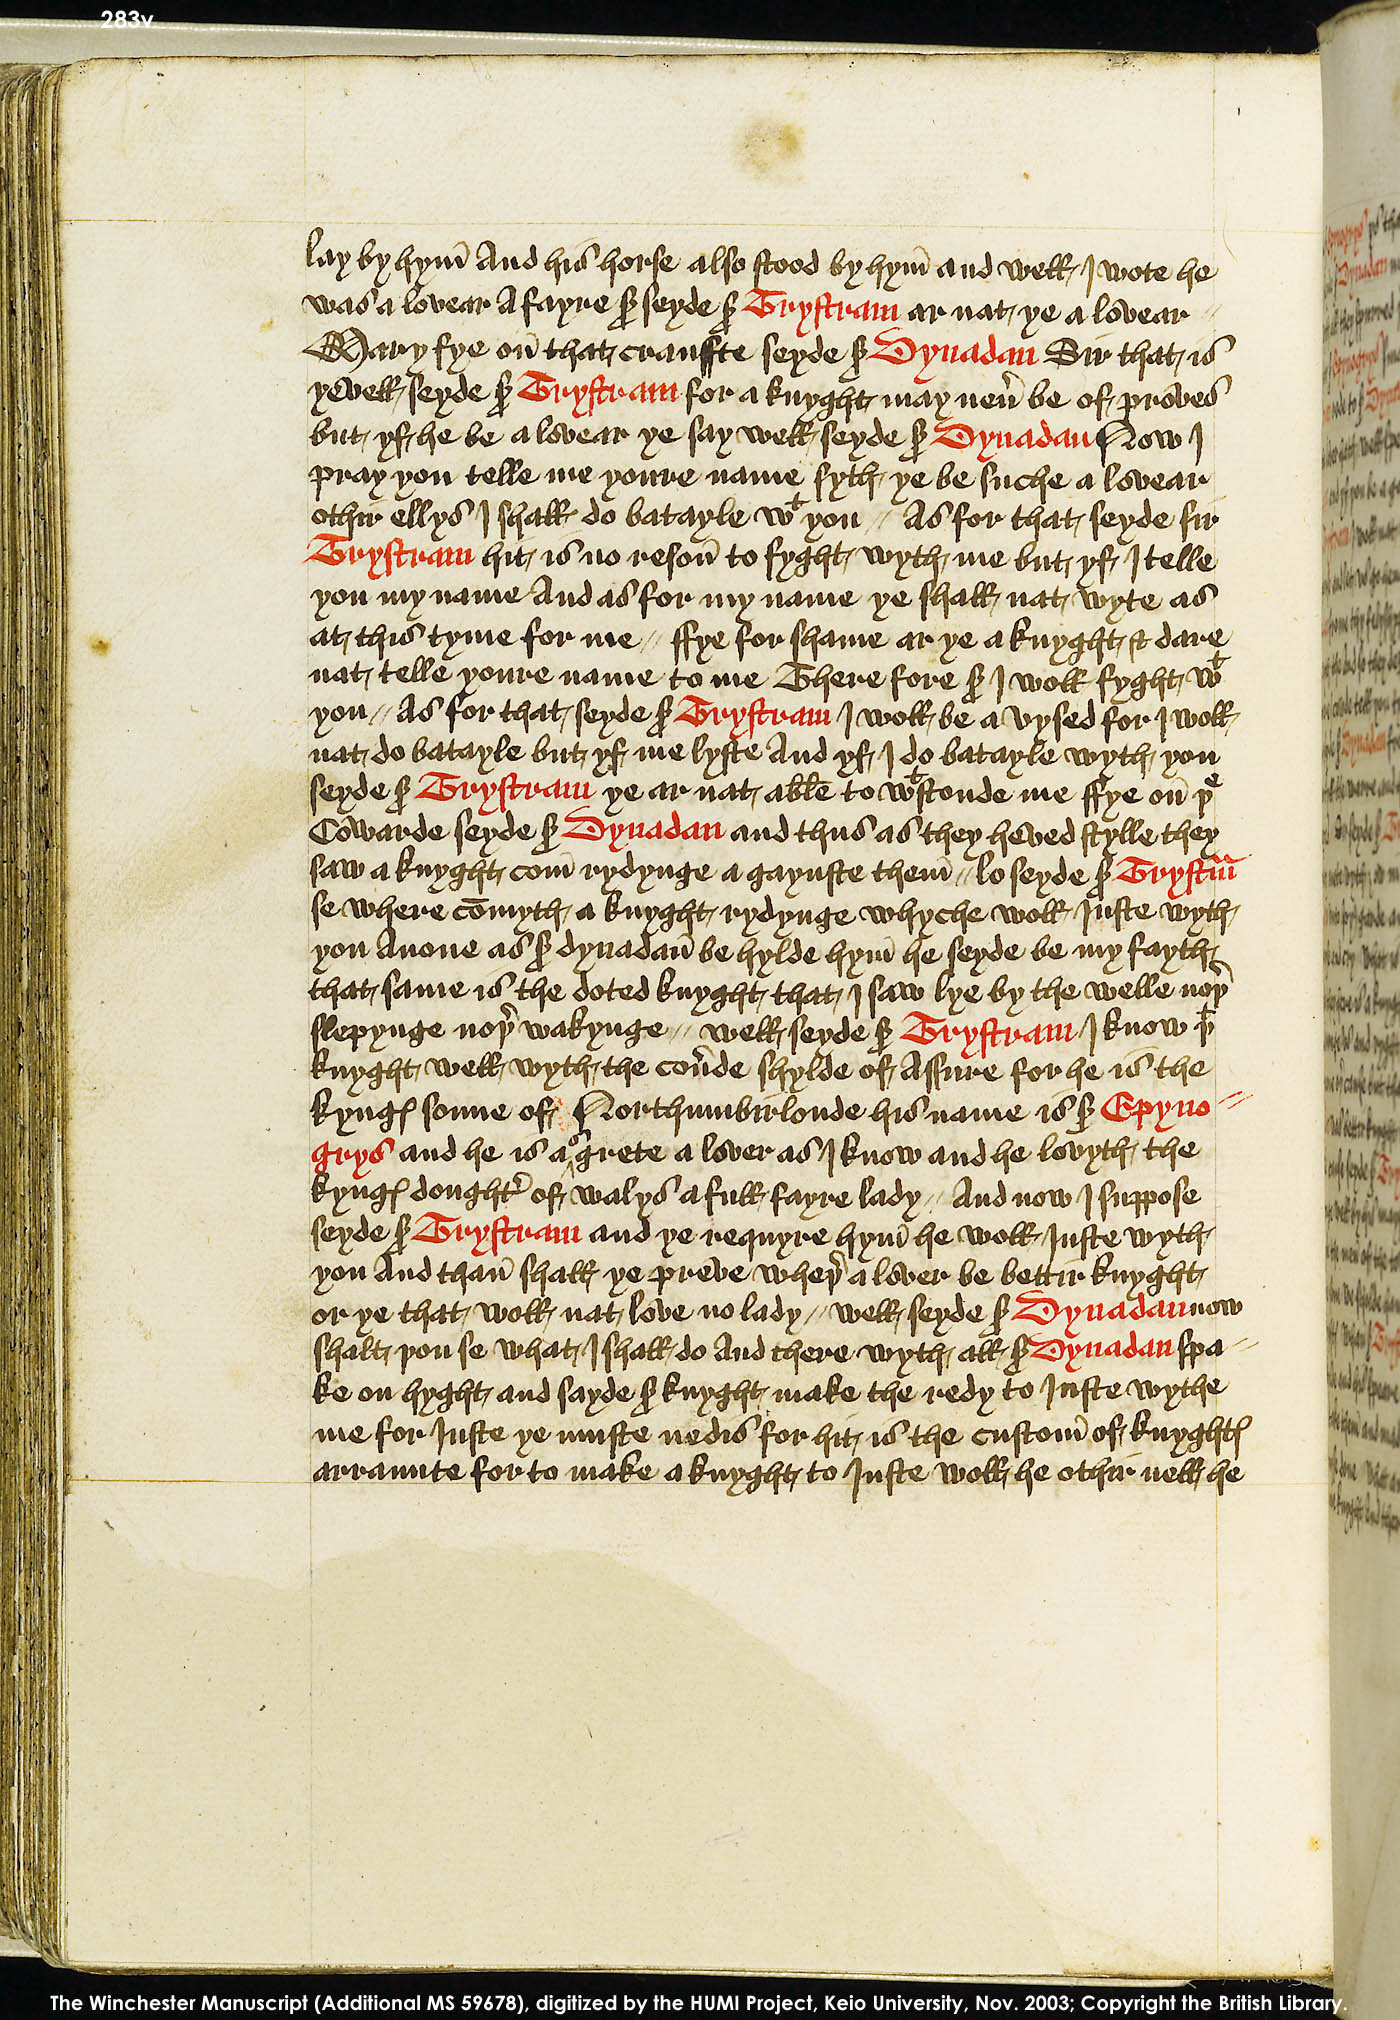 283v
lay by hym̄ And his horse also stood by hym̄ and well I wote he
was a lovear A fayre sr̄ seyde sr̄ Trystram ar nat ye a lovear //
Mary fye on̄ that crauffte seyde sr̄ Dynadan Sir that is
yevell seyde sr̄ Trystram for a knyght may neu̅ be of proves
but yf he be a lovear ye say well seyde sr̄ Dynadan Now I
pray you telle me youre name syth ye be suche a lovear
othir ellys I shall do batayle wᵗ you // As for that seyde sir
Trystram hit is no reson̄ to fyght wyth me but yf I telle
you my name And as for my name ye shall nat wyte as
at this tyme for me // ffye for shame ar ye a knyght & dare
nat telle youre name to me There fore sr̄ I woll fyght wᵗ
you // As for that seyde sr̄ Trystram I woll be a vysed for I woll
nat do batayle but yf me lyste And yf I do batayle wyth you
seyde sr̄ Trystram ye ar nat able to wᵗstonde me ffye on̄ þᵉ
Cowarde seyde sr̄ Dynadan and thus as they heved stylle they
saw a knyght com̄ rydynge a gaynste them̄ // lo seyde sr̄ Trystrm̄
se where cōmyth a knyght rydynge whyche woll Juste wyth
you Anone as sr̄ dynadan̄ be hylde hym̄ he seyde be my fayth
that same is the doted knyght that I saw lye by the welle noþ̄
slepynge noþ̄ wakynge // well seyde sr̄ Trystram I know þᵗ
knyght well wyth the cou̅de shylde of Assure for he is the
kyngꝭ sonne of Northumbirlonde his name is sr̄ Epyno //
grys and he is a^s grete a lover as I know and he lovyth the
kyngꝭ doughtr̄ of walys a full fayre lady // And now I suppose
seyde sr̄ Trystram and ye requyre hym̄ he woll Juste wyth
you And than̄ shall ye preve wheþ̄ a lover be bettir knyght
or ye that woll nat love no lady // well seyde sr̄ Dynadan now
shalt þou se what I shall do And there wyth all sr̄ Dynadan spa //
ke on hyght and sayde sr̄ knyght make the redy to Juste wythe
me for Juste ye muste nedis for hit is the custom̄ of knyghtꝭ
arraunte for to make a knyght to Juste woll he othir nell he
The Winchester Manuscript (Additional MS 59678), digitized by the HUMI Project, Keio University, Nov. 2003; Copyright the British Library.